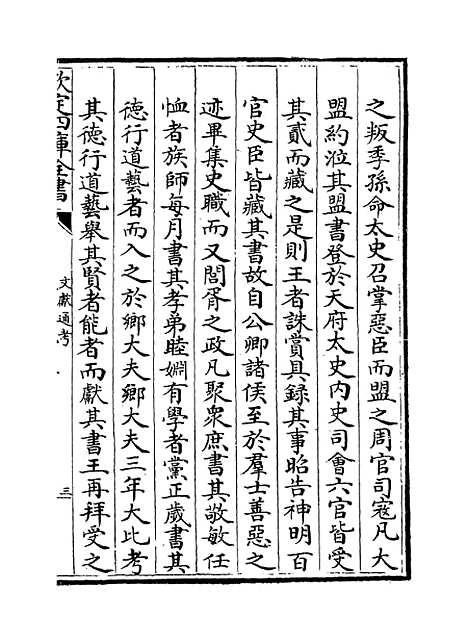 之叛季孫命太史召掌惡臣而盟之周官司寇凡大
盟約涖其盟書登於天府太史内史司會六官皆受
其貳而藏之是則王者誅賞具錄其事昭告神明百
官史臣皆藏其書故自公卿諸侯至於羣士善惡之
迹畢集史職而又閭胥之政凡聚衆庶書其敬敏任
恤者族師每月書其孝弟睦婣有學者黨正歲書其
徳行道藝者而入之於鄉大夫鄉大夫三年大比考
其徳行道藝舉其賢者能者而獻其書王再拜受之
欽定四庫全書
文獻通考
三